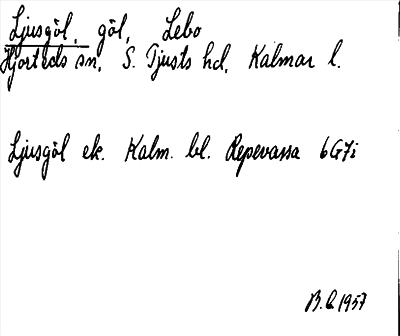 Ljusgöl, göl, Lebo
Hjorteds sn, S. Tjusts hd, Kalmar l.
Ljusgöl ek. Kalm. bl. Repevassa 6G7i
1957